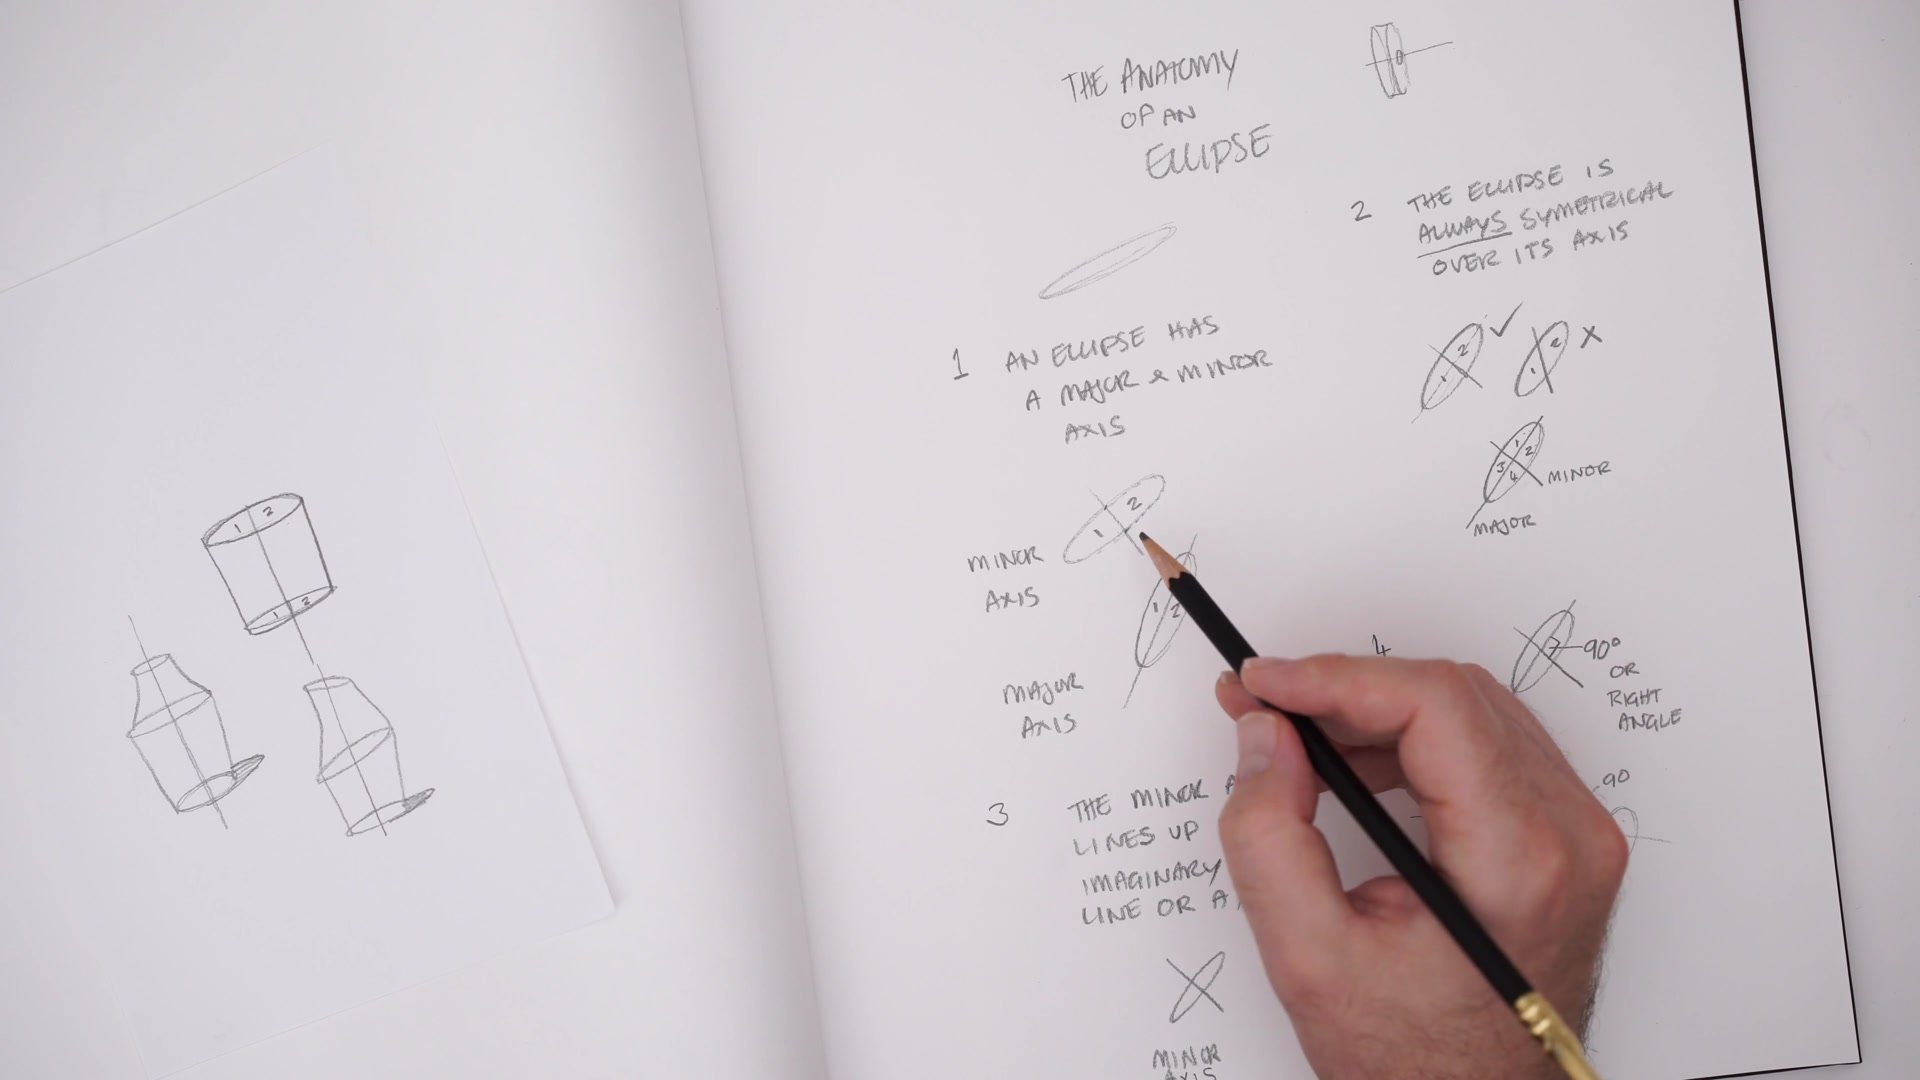 THE ANATOMY
OF AN
ELLIPSE
1 AN ELLIPSE HAS
A MAJOR & MINOR
AXIS
1 2
MINOR
AXIS
1 2
MAJOR
AXIS
2 THE ELLIPSE IS
ALWAYS SYMETRICAL
OVER ITS AXIS
1 2 ✓ 1 2 X
1 2
3 4
MINOR
MAJOR
3 THE MINOR A
LINES UP
IMAGINARY
LINE OR A
MINOR
AXIS
4
90°
OR
RIGHT
ANGLE
90
1 2
1 2